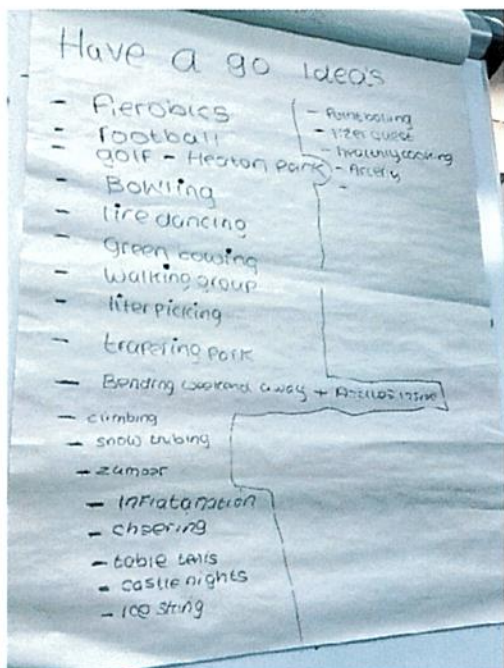 Have a go ideas
- Aerobics
- football
- golf - Heaton Park
- Bowling
- line dancing
- green bowing
- Walking group
- liter picking
- trapering park
- Bonding weekend away +
- climbing
- snow tubing
- zumbar
- Inflatanation
- cheering
- table tenis
- castle nights
- ice sking
- Paint boling
- lizer quest
- healthly cooking
- Arcery
-